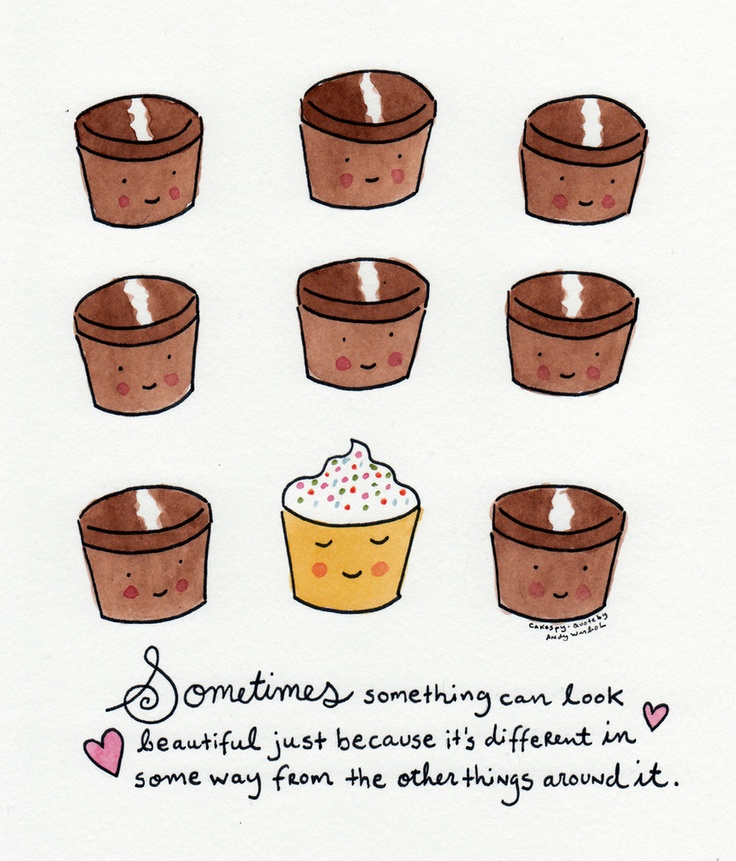 Cakespy. Quote by
Andy Warhol
Sometimes something can look
beautiful just because it's different in
some way from the other things around it.